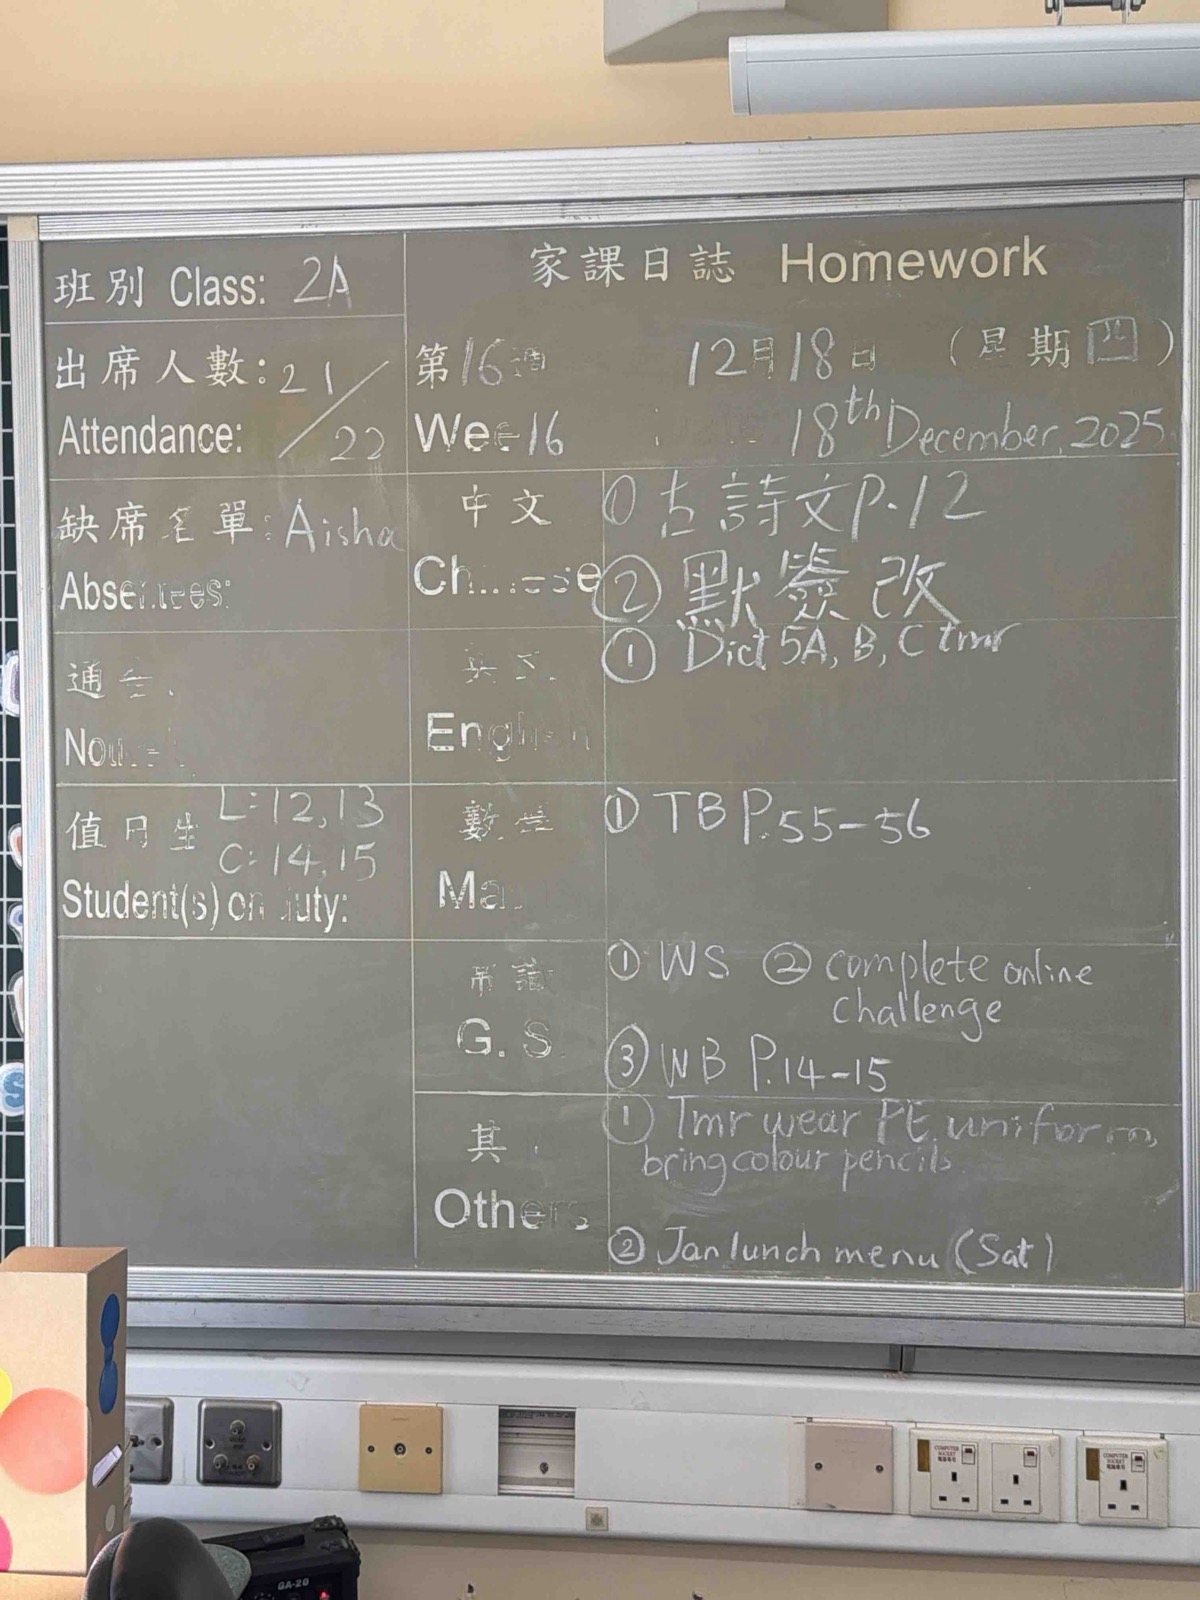 家課日誌 Homework
班別 Class: 2A
出席人數: 21/22
Attendance:
第16週 12月18日 (星期四)
Wee 16 18th December, 2025
缺席名單: Aisha
Absentees:
中文
① 古詩文P.12
② 默簽改
通告
English
① Dict 5A, B, C tmr
值日生 L: 12, 13
C: 14, 15
Student(s) on duty:
數學
Ma
① TB P.55-56
常識
G. S.
① WS ② complete online
challenge
③ WB P.14-15
其
Others
① Tmr wear PE uniform,
bring colour pencils.
② Jan lunch menu (Sat)
COMPUTER SOCKET
COMPUTER SOCKET
GA-20